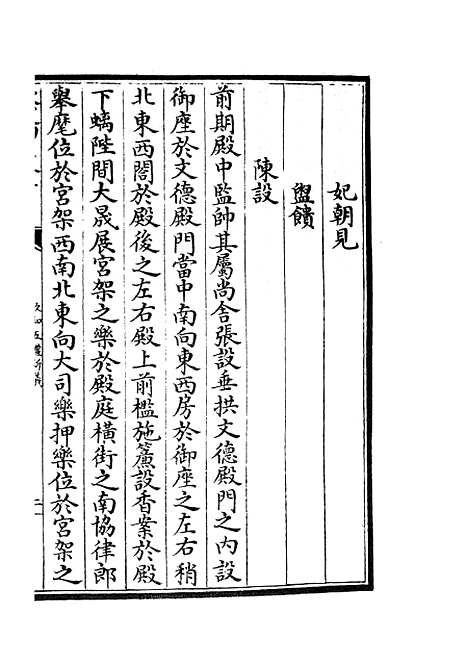 妃朝見
盥饋
陳設
前期殿中監帥其屬尚舍張設垂拱文德殿門之內設
御座於文德殿門當中南向東西房於御座之左右稍
北東西閤於殿後之左右殿上前檻施簾設香案於殿
下螭陛間大晟展宮架之樂於殿庭橫街之南協律郎
舉麾位於宮架西南北東向大司樂押樂位於宮架之